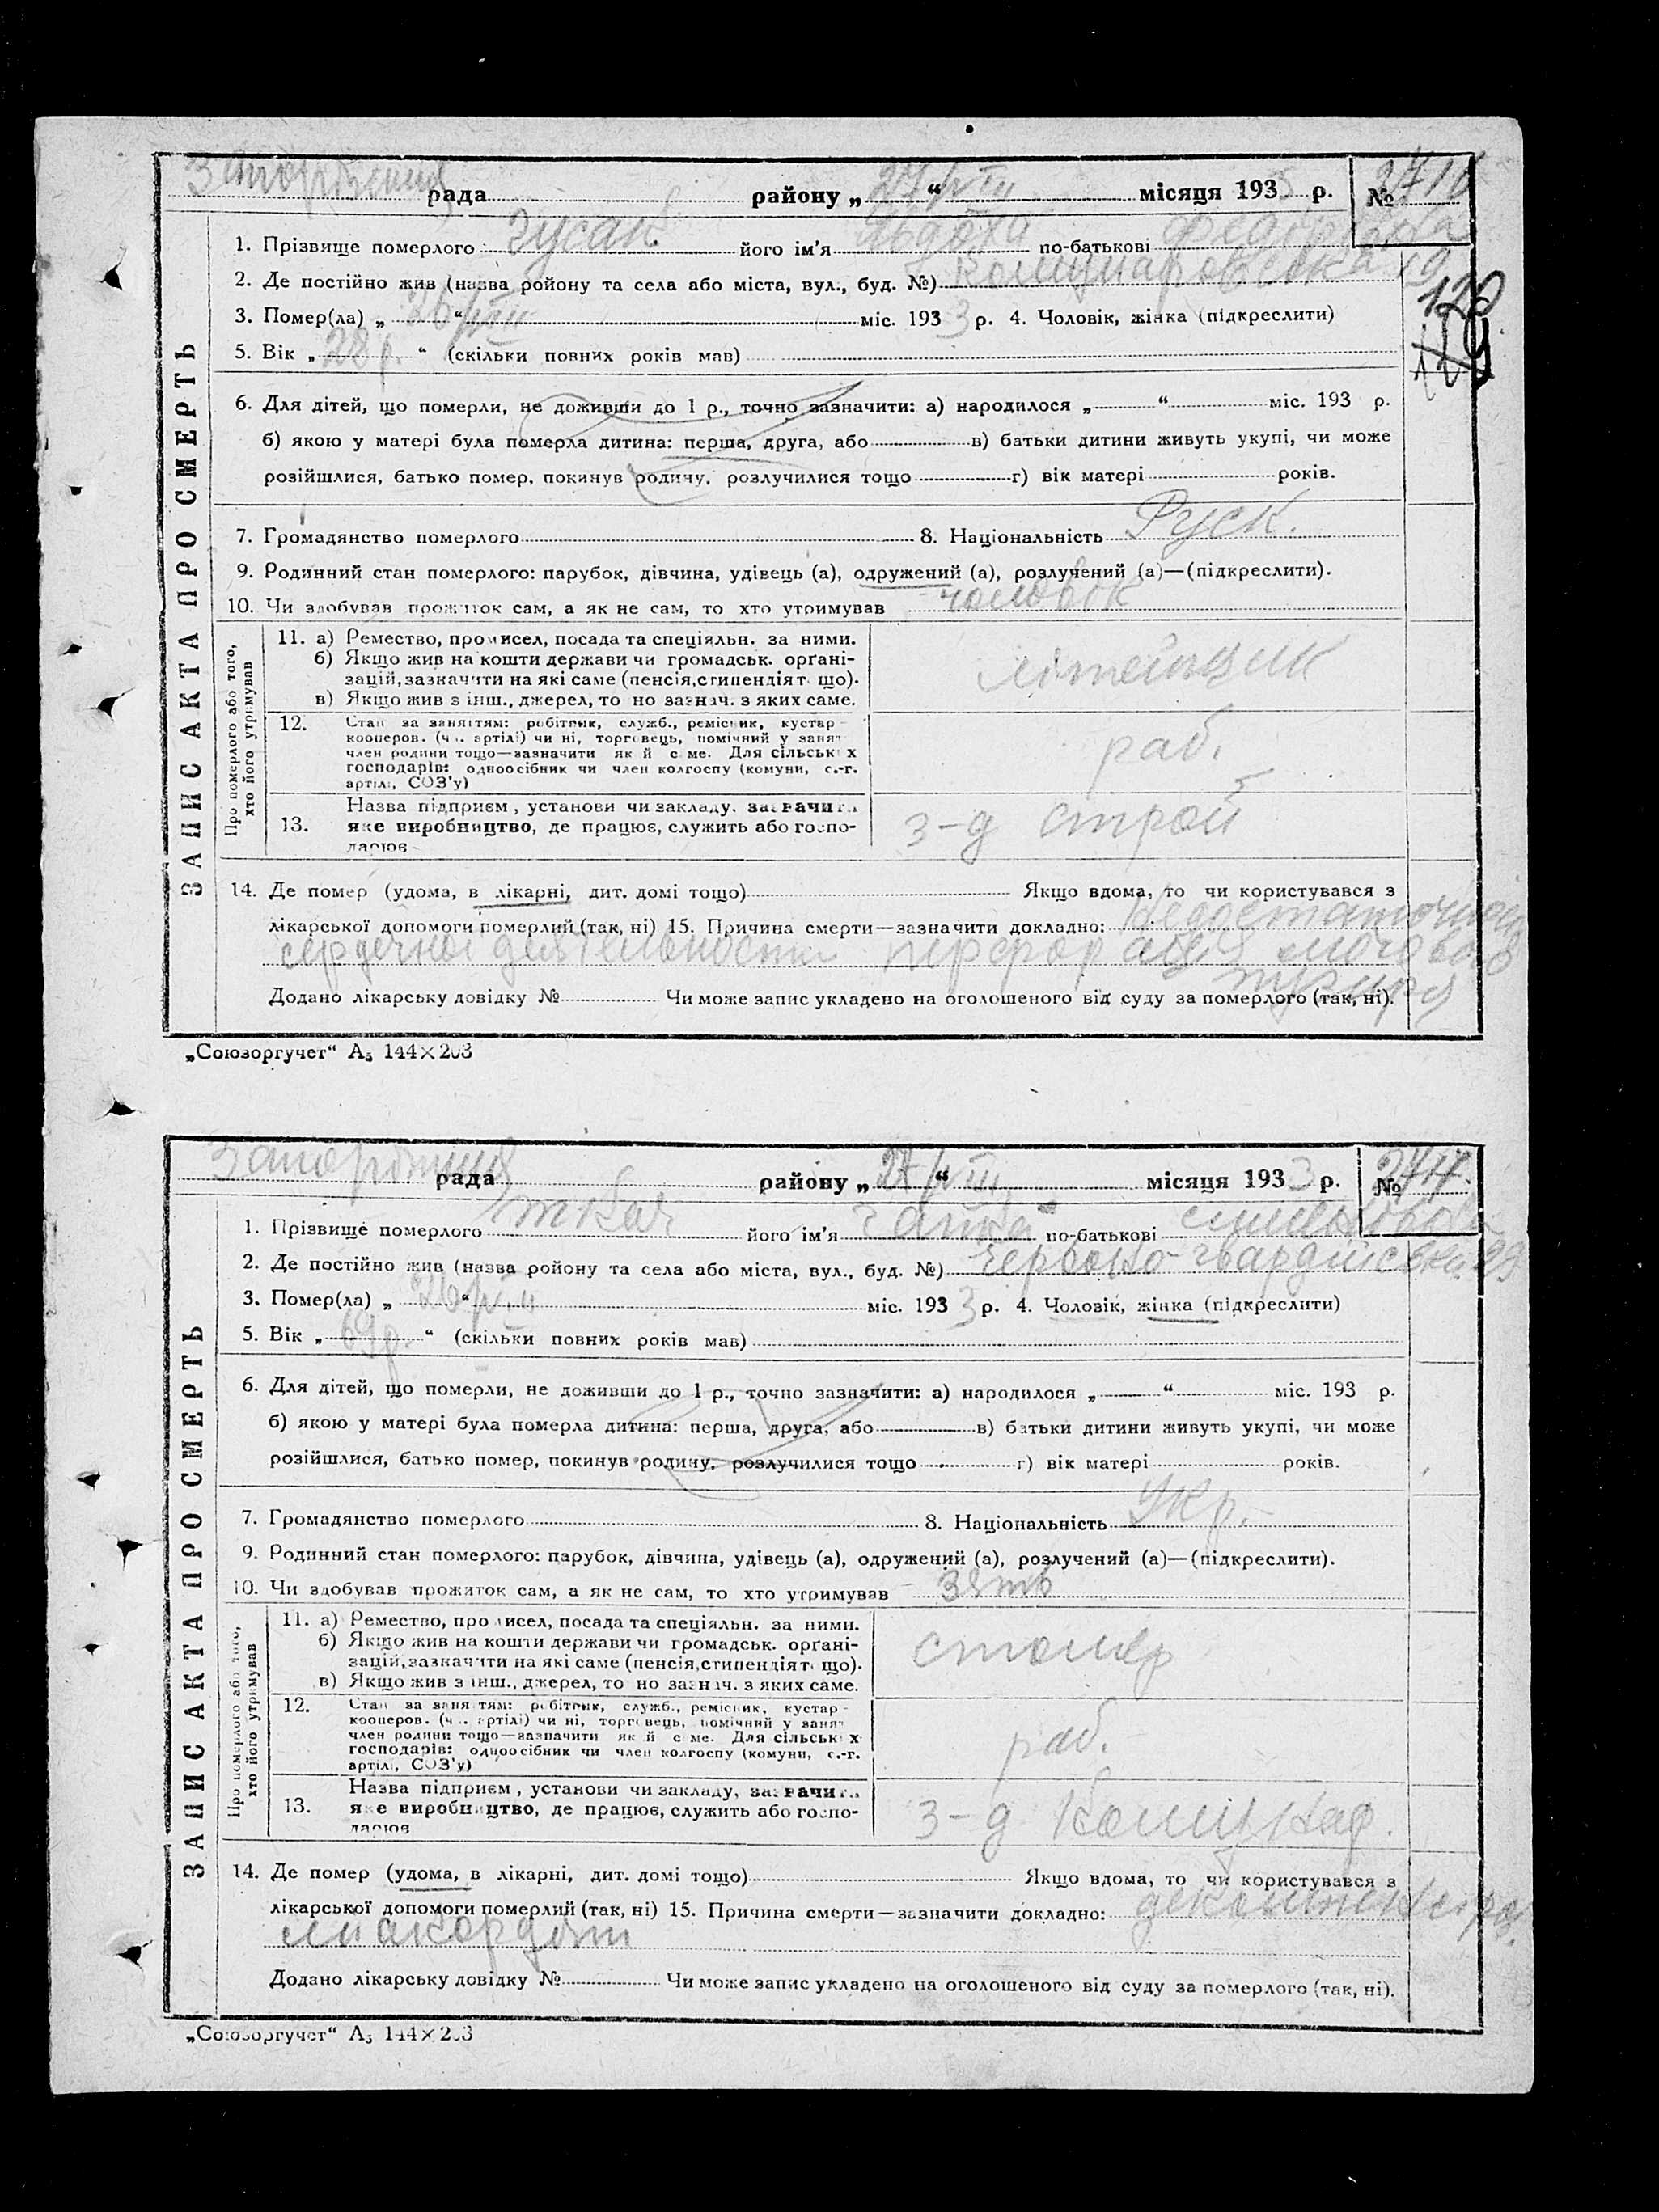 Запоріжжя рада району „ 27/VIII “ місяця 1933 р. № 2416
1. Прізвище померлого Гусак його ім’я Явдоха по-батькові Федорівна
2. Де постійно жив (назва ройону та села або міста, вул., буд. №) Комунаровська 19
120
3. Помер(ла) „ 26/VIII “ міс. 1933 р. 4. Чоловік, жінка (підкреслити)
5. Вік „ 28 р. “ (скільки повних років мав)
6. Для дітей, що померли, не доживши до 1 р., точно зазначити: а) народилося „ “ міс. 193 р.
б) якою у матері була померла дитина: перша, друга, або в) батьки дитини живуть укупі, чи може
розійшлися, батько помер, покинув родину, розлучилися тощо г) вік матері років.
7. Громадянство померлого 8. Національність Руск.
9. Родинний стан померлого: парубок, дівчина, удівець (а), одружений (а), розлучений (а)—(підкреслити).
10. Чи здобував прожиток сам, а як не сам, то хто утримував чоловік
ЗАПИС АКТА ПРО СМЕРТЬ
Про померлого або того,
хто його утримував
11. а) Ремество, промисел, посада та спеціяльн. за ними.
б) Якщо жив на кошти держави чи громадськ. орґані-
зацій, зазначити на які саме (пенсія, стипендія т що).
в) Якщо жив з інш., джерел, то но зазнач. з яких саме.
літейщик
12. Стан за заняттям: робітник, служб., ремісник, кустар-
кооперов. (ч артілі) чи ні, торговець, помічний у занят
член родини тощо—зазначити як й с ме. Для сільськ х
господарів: одноосібник чи член колгоспу (комуни, с.-г.
артілі, СОЗ’у)
раб.
13. Назва підприєм , установи чи закладу, зазначити
яке виробництво, де працює, служить або госпо-
дарює
з-д строй
14. Де помер (удома, в лікарні, дит. домі тощо) Якщо вдома, то чи користувався з
лікарської допомоги померлий (так, ні) 15. Причина смерти—зазначити докладно: недостаточность
сердечной деятельности перфорація мочового
пузиря
Додано лікарську довідку № Чи може запис укладено на оголошеного від суду за померлого (так, ні).
„Союзоргучет“ А5 144×203
Запоріжжя рада району „ 27/VIII “ місяця 1933 р. № 2417.
1. Прізвище померлого Ткач його ім’я по-батькові
2. Де постійно жив (назва ройону та села або міста, вул., буд. №) Червоно-гвардійська 29
3. Помер(ла) „ 26/VIII “ міс. 1933 р. 4. Чоловік, жінка (підкреслити)
5. Вік „ 69 р. “ (скільки повних років мав)
6. Для дітей, що померли, не доживши до 1 р., точно зазначити: а) народилося „ “ міс. 193 р.
б) якою у матері була померла дитина: перша, друга, або в) батьки дитини живуть укупі, чи може
розійшлися, батько помер, покинув родину, розлучилися тощо г) вік матері років.
7. Громадянство померлого 8. Національність Укр.
9. Родинний стан померлого: парубок, дівчина, удівець (а), одружений (а), розлучений (а)—(підкреслити).
10. Чи здобував прожиток сам, а як не сам, то хто утримував зять
ЗАПИС АКТА ПРО СМЕРТЬ
Про померлого або того,
хто його утримував
11. а) Ремество, промисел, посада та спеціяльн. за ними.
б) Якщо жив на кошти держави чи громадськ. орґані-
зацій, зазначити на які саме (пенсія, стипендія т що).
в) Якщо жив з інш., джерел, то но зазнач. з яких саме.
столяр
12. Стан за заняттям: робітник, служб., ремісник, кустар-
кооперов. (ч артілі) чи ні, торговець, помічний у занят
член родини тощо—зазначити як й с ме. Для сільськ х
господарів: одноосібник чи член колгоспу (комуни, с.-г.
артілі, СОЗ’у)
раб.
13. Назва підприєм , установи чи закладу, зазначити
яке виробництво, де працює, служить або госпо-
дарює
з-д Комунар.
14. Де помер (удома, в лікарні, дит. домі тощо) Якщо вдома, то чи користувався з
лікарської допомоги померлий (так, ні) 15. Причина смерти—зазначити докладно: декомпенсіров.
міакордит
Додано лікарську довідку № Чи може запис укладено на оголошеного від суду за померлого (так, ні).
„Союзоргучет“ А5 144×203